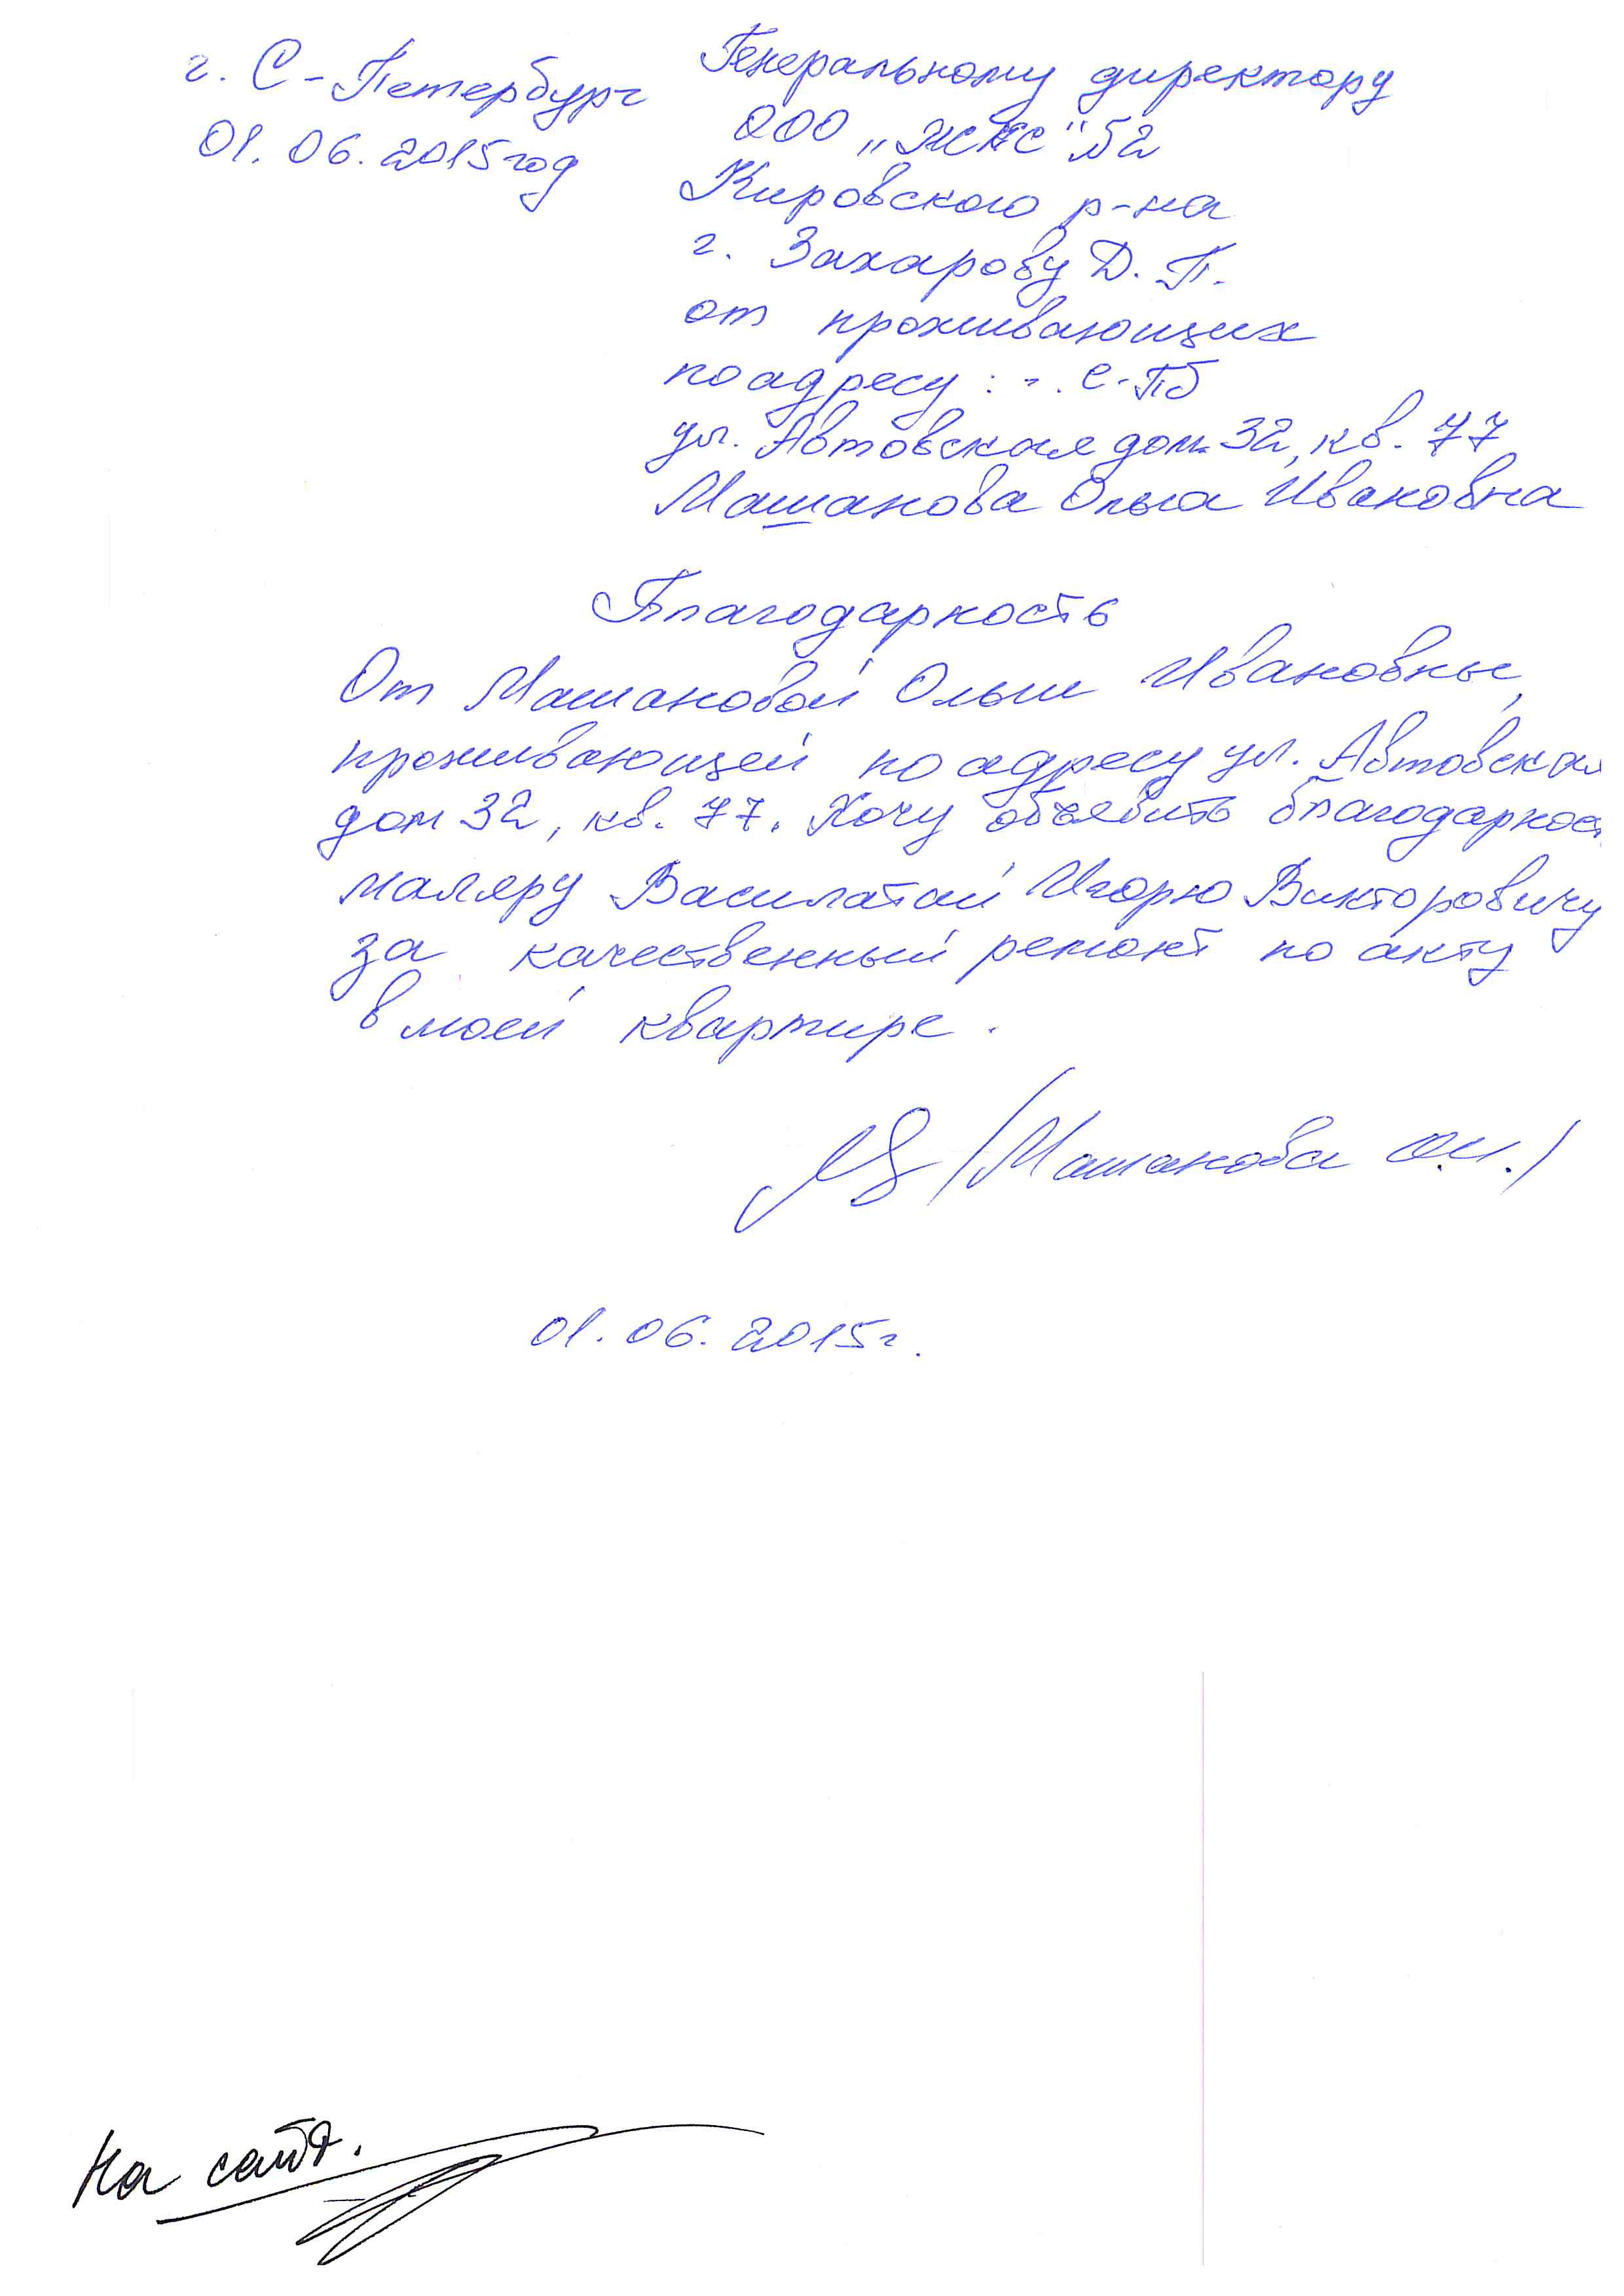 г. С-Петербург
01.06.2015 год
Генеральному директору
ООО „ЖКС" №2
Кировского р-на
г. Захарову Д. П.
от проживающих
по адресу: г. С-Пб
ул. Автовская дом 32, кв. 77
Машанова Ольга Ивановна
Благодарность
От Машановой Ольги Ивановны,
проживающей по адресу ул. Автовская
дом 32, кв. 77. Хочу объявить благодарност
маляру Василатий Игорю Викторовичу
за качественный ремонт по акту
в моей квартире.
/Машанова О.И./
01.06.2015г.
На сайт.